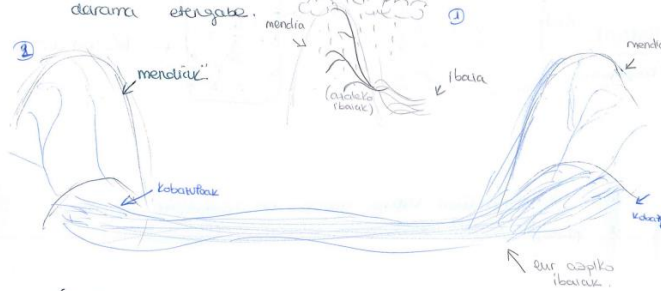 darama etengabe.
mendia
①
ibaia
(azaleko
ibaiak)
②
mendiak
mendia
kobazuloak
lur azpiko
ibaiak.